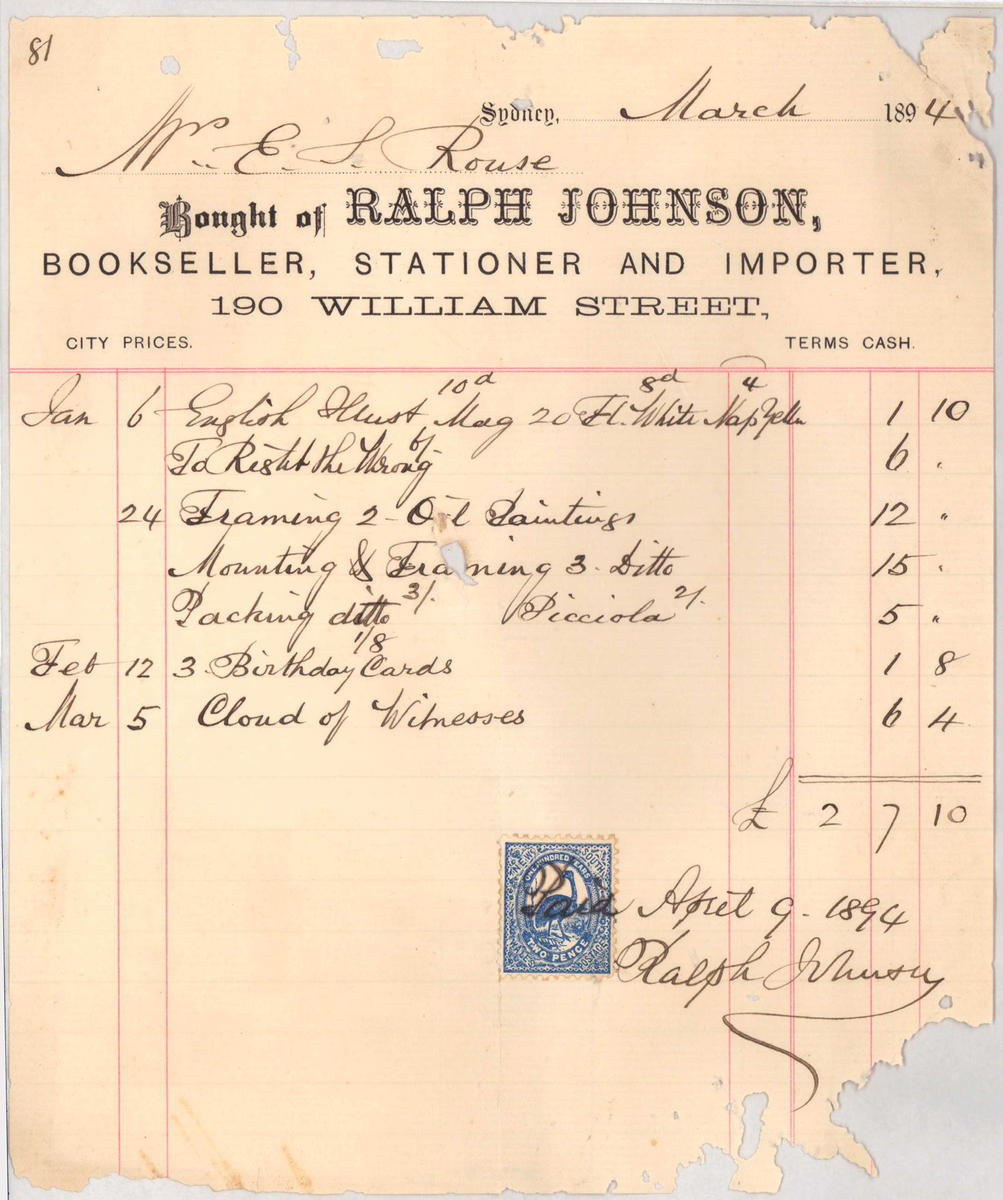 81
Sydney, March 1894
Mrs. E. S. Rouse
Bought of RALPH JOHNSON,
BOOKSELLER, STATIONER AND IMPORTER,
190 WILLIAM STREET,
CITY PRICES. TERMS CASH.
Jan 6 English Illust Mag 10d 20 Ft. White 8d 4 1 10
To Right the Wrong 6/ 6 "
24 Framing 2 Oil Paintings 12 "
Mounting & Framing 3 Ditto 15 "
Packing ditto 3/. Picciola 2/. 5 "
Feb 12 3 Birthday Cards 1/8 1 8
Mar 5 Cloud of Witnesses 6 4
£ 2 7 10
NEW SOUTH WALES POSTAGE
ONE HUNDRED YEARS
TWO PENCE
Paid April 9 - 1894
Ralph Johnson